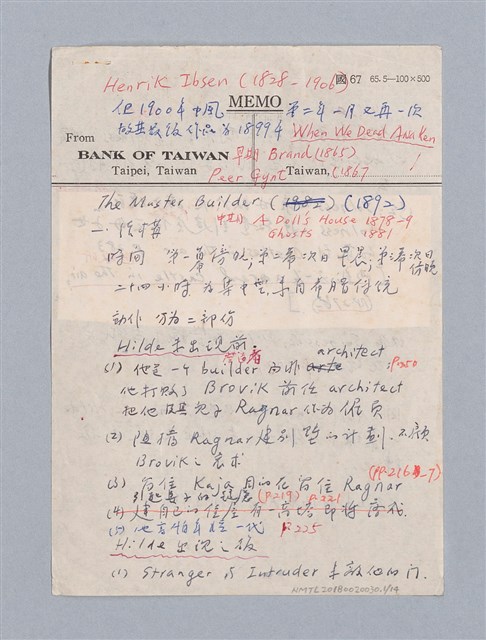 國67 65.5—100×500
Henrik Ibsen (1828 - 1906)
但1900年中風 MEMO 第二年一月又再一次
故其最後作品為1899年 When We Dead Awaken!
From
BANK OF TAIWAN 早期 Brand (1865)
Taipei, Taiwan Peer Gynt Taiwan, (1867
The Master Builder (1892)
中期 A Doll's House 1878-9
Ghosts 1881
一. 結構
時間 第一幕傍晚, 第二幕次日早晨, 第三幕次日傍晚
二十四小時 為集中型, 具有希臘傳統
動作 分為二部份
Hilde 未出現前.
(1) 他是一個 builder 而非 architect p.250
他打敗了 Brovik 前任 architect
把他及其兒子 Ragnar 作為僱員
(2) 阻擋 Ragnar 建別墅的計劃. 不顧
Brovik 之要求
(3) 留住 Kaja 目的在留住 Ragnar (pp.216-7)
引起妻子的 (p.219) p.221
(4) 建自己的住屋 有一高塔 即將落成
(5) 他害怕年輕一代 p.225
Hilde 出現之後
(1) Stranger or Intruder 的門.
NMTL20180020030.1/14